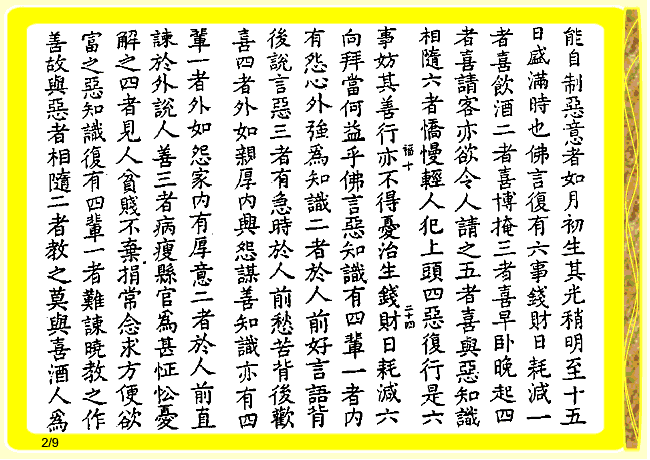 能自制惡意者如月初生其光稍明至十五
日盛滿時也佛言復有六事錢財日耗減一
者喜飲酒二者喜博掩三者喜早卧晚起四
者喜請客亦欲令人請之五者喜與惡知識
相隨六者憍慢輕人犯上頭四惡復行是六
事妨其善行亦不得憂治生錢財日耗減六
福十
二十四
向拜當何益乎佛言惡知識有四輩一者內
有怨心外強為知識二者於人前好言語背
後說言惡三者有急時於人前愁苦背後歡
喜四者外如親厚內興怨謀善知識亦有四
輩一者外如怨家內有厚意二者於人前直
諫於外說人善三者病瘦縣官為甚怔忪憂
解之四者見人貧賤不棄捐常念求方便欲
富之惡知識復有四輩一者難諫曉教之作
善故與惡者相隨二者教之莫與喜酒人為
2/9